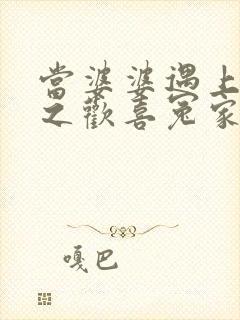 當婆婆遇上
之歡喜冤家
嘎巴